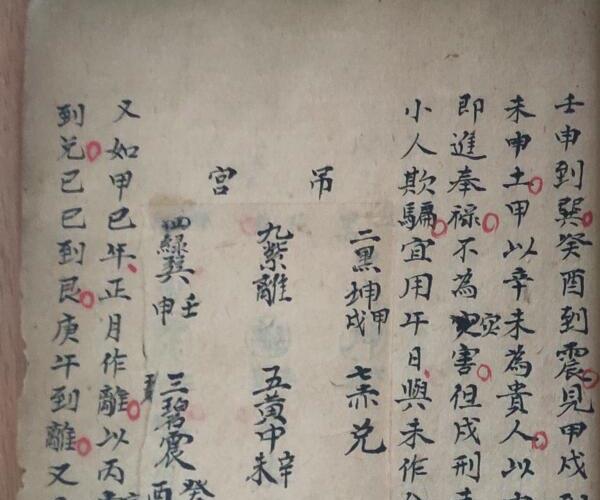 壬申到巽癸酉到震見甲戌到
未申土甲以辛未為貴人以
即進奉祿不為災害但戌刑
小人欺騙宜用午日與未作
吊宮
二黑坤甲戌 七赤兌
九紫離 五黃中辛未
四綠巽壬申 三碧震癸酉
又如甲巳年正月作離以丙
到兌己巳到艮庚午到離又